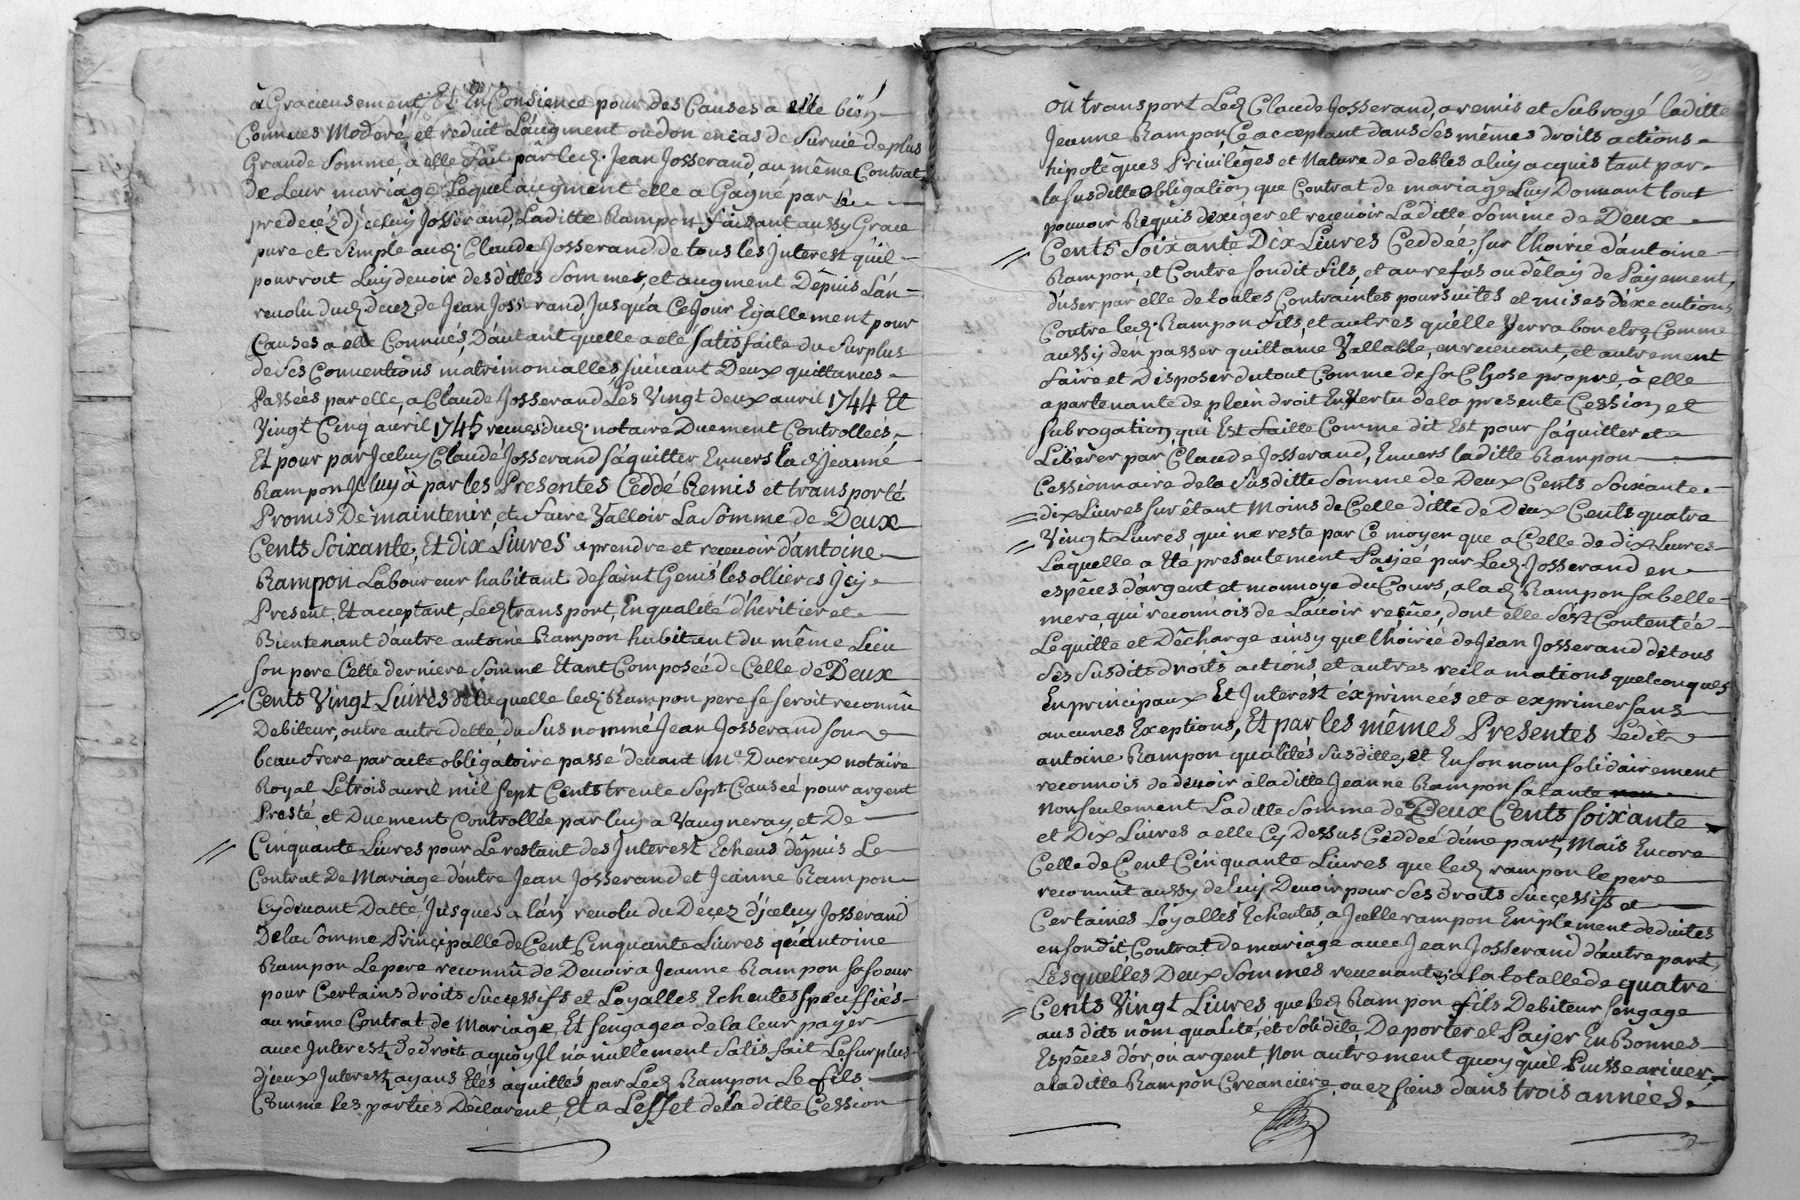 a Gracieusement Et En Consience pour des Causes a elle bien
Connues Modoré et reduit L'augment ou don en cas de Survie de plus
Grande Somme à elle fait par led. Jean Josserand, au même Contrat
de Leur mariage Lequel augment elle a Gagné par le
predecéz d'jceluy Josserand, Laditte Rampon faisant aussy Grace
pure et Simple aud. Claude Josserand de tous les Interest qu'il
pourroit Luy devoir des dittes Sommes, et augment Dêpuis L'an
revolu dud. dêcez de Jean Josserand, Jusqu'a Cejour Egallement pour
Causes a elle Connues, D'autant quelle a eté Satisfaite du Surplus
de Ses Conventions matrimonialles, suivant Deux quittances
Passées par elle, a Claude Josserand Les Vingt deux avril 1744 Et
Vingt Cinq avril 1745 recues dud. notaire Duement Controllees,
Et pour par Jceluy Claude Josserand S'aquitter Envers lad. Jeanne
Rampon Jl luy à par les Presentes Ceddé Remis et transporté
Promis De maintenir, et faire Valloir La Somme de Deux
Cents Soixante, Et Dix Livres a prendre et recevoir d'antoine
Rampon Laboureur habitant de Saint Genis les ollieres Jcy
Present, Et acceptant, Led. transport, En qualité d'heritier et
Bientenant d'autre antoine Rampon habitant du même Lieu
Son pere Cette derniere Somme Etant Composée de Celle de Deux
Cents Vingt Livres de laquelle led. Rampon pere se seroit reconnu
Debiteur, outre autre dette, du Sus nommé Jean Josserand Son
beau frere par acte obligatoire passé devant Me. Ducreux notaire
Royal Le trois avril mil Sept Cents trente Sept Causée pour argent
Presté et Duement Controllée par luy a Vaugneray, et De
Cinquante Livres pour Le restant des Interest Echeus dêpuis Le
Contrat De Mariage d'entre Jean Josserand et Jeanne Rampon
Cy devant Datté, Jusques a l'an revolu du Decez d'jceluy Josserand
De la Somme Principalle de Cent Cinquante Livres qu'antoine
Rampon Le pere reconnû de Devoir a Jeanne Rampon Sa Soeur
pour Certains droits Successifs et Loyalles Echeutes Speciffiés
au même Contrat de Mariage, Et S'engagea de la leur payer
avec Interest de Droit a quoy Jl n'a nullement Satisfait Le Surplus
d'jceux Interest ayans Etés aquittés par Led. Rampon Le fils
Comme les parties Dêclarent, Et a L'effet de la ditte Cession
ou transport Led. Claude Josserand, a remis et Subrogé laditte
Jeanne Rampon, Ce acceptant dans Ses mêmes droits actions
hipotêques Privilêges et Nature de debtes a luy acquis tant par
la Susditte obligation que Contrat de mariage Luy Donnant tout
pouvoir Requis d'exiger et recevoir Laditte Somme de Deux
Cents Soixante Dix Livres Ceddée, sur l'hoirie d'antoine
Rampon, et Contre Sondit fils, et au refus ou dêlay de Payement,
d'user par elle de toutes Contraintes poursuites et mises d'éxecutions
Contre led. Rampon fils, et autres qu'elle Verra bon etre, Comme
aussy d'en passer quittance Vallable, en recevant, et autrement
faire et Disposer du tout Comme de Sa Chose propre, à elle
apartenante de plein droit En Vertu de la presente Cession et
Subrogation, qui Est faitte Comme dit Est pour S'aquitter et
Liberer par Claude Josserand, Envers laditte Rampon
Cessionnaire de la Susditte Somme de Deux Cents Soixante
dix Livres sur êtant Moins de Celle ditte de Deux Cents quatre
Vingt Livres, qui ne reste par Ce moyen que a Celle de dix Livres
Laquelle a Eté presentement Payée par Led. Josserand en
espêces d'argent et monnoye du Cours, a lad. Rampon Sa belle
mere, qui reconnois de L'avoir reçûe, dont elle S'est Contentée
Le quitte et Dêcharge ainsy que l'hoirie de Jean Josserand de tous
Ses Susdits droits actions et autres reclamations quelconques
En principaux Et Interest éxprimées et a exprimer Sans
aucunes Exceptions, Et par les mêmes Presentes Ledit
antoine Rampon qualités Susdittes, et En Son nom Solidairement
reconnois de devoir a laditte Jeanne Rampon Sa tante
Non Seulement Laditte Somme de Deux Cents Soixante
et Dix Livres a elle Cy Dessus Ceddeé d'une part, Mais Encore
Celle de Cent Cinquante Livres que led. rampon le pere
reconnût aussy de luy Devoir pour Ses Droits Successifs et
Certaines Loyalles Echeutes, a Jcelle rampon Emplement deduites
en Sondit Contrat de mariage avec Jean Josserand d'autre part,
Lesquelles Deux Sommes revenantes a la totalle de quatre
Cents Vingt Livres que led. Rampon fils Debiteur S'engage
aus dits nôm qualité, et Solidité, De porter et Payer En Bonnes
Espêces d'or, ou argent, Non autrement quoy qu'il Puisse ariver
a laditte Rampon Creanciere ou ez Siens dans trois années